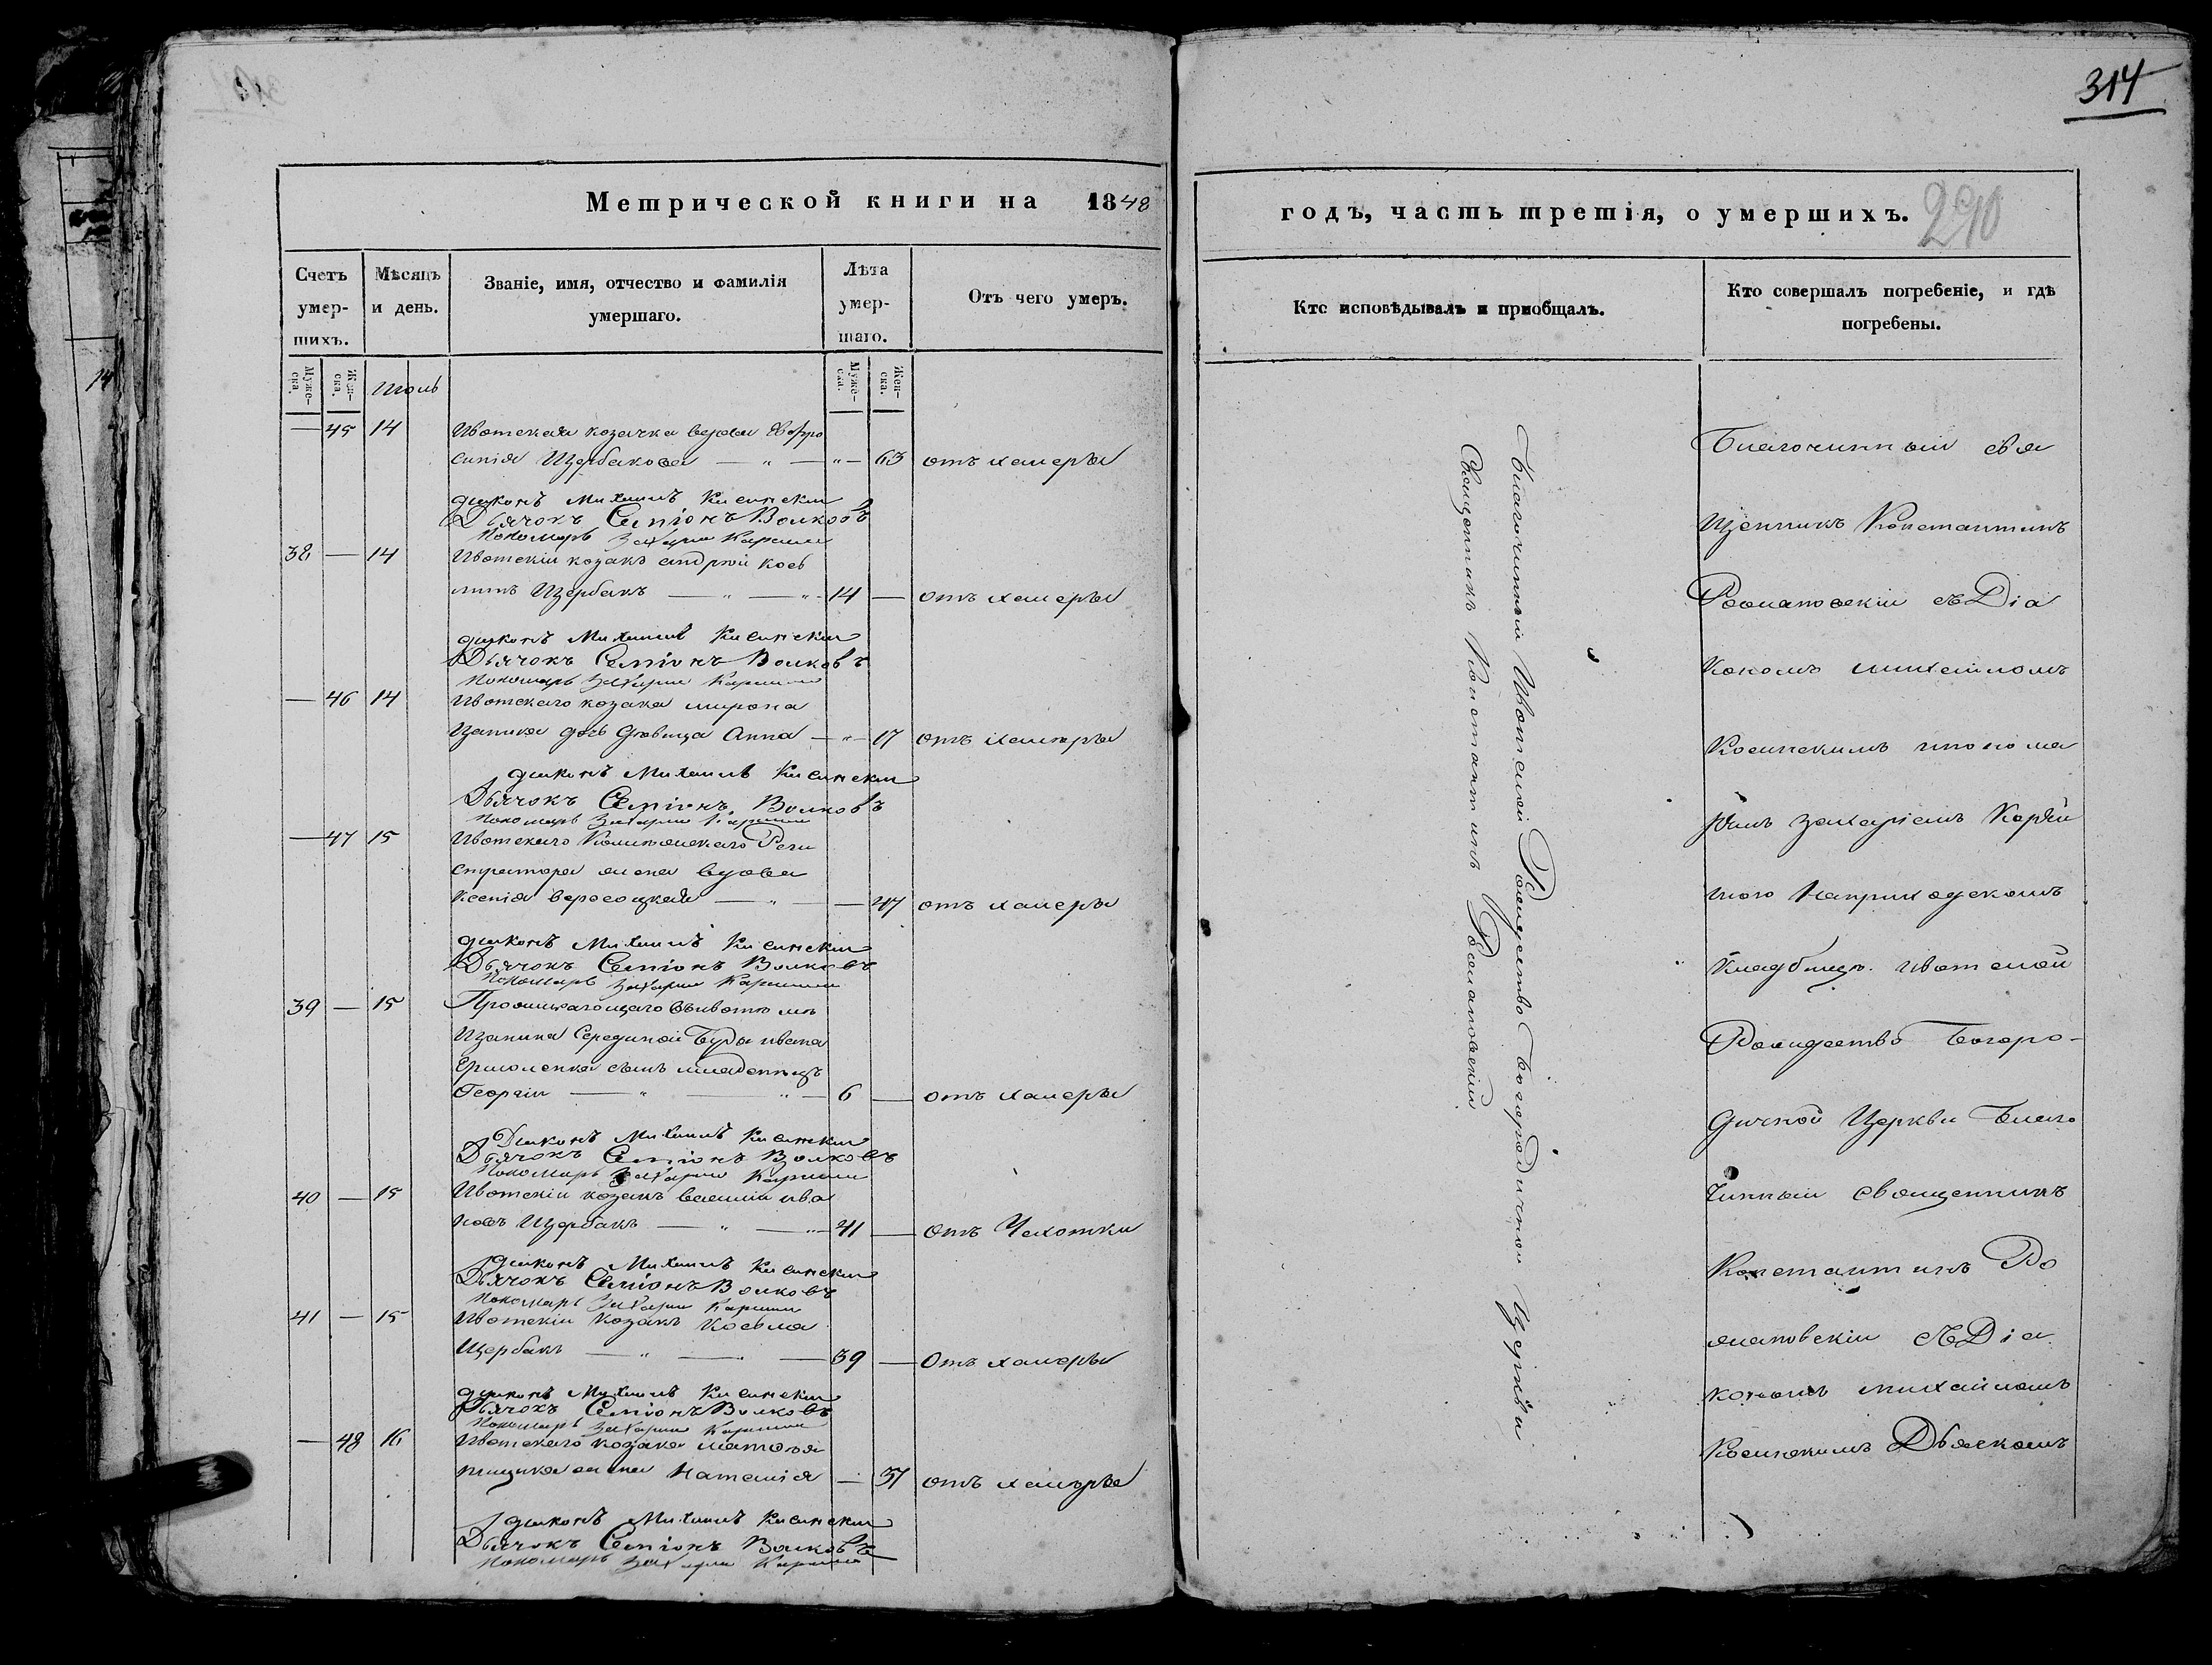 314
Метрической книги на 1848
годъ, часть третія, о умершихъ. 290
Счетъ умер-шихъ.
Мѣсяцъ и день.
Званіе, имя, отчество и фамилія умершаго.
Лѣта умер-шаго.
Отъ чего умеръ.
Кто исповѣдывалъ и пріобщалъ.
Кто совершалъ погребеніе, и гдѣ погребены.
Муже-ска. Жен-ска.
Муже-ска. Жен-ска.
Июль
— 45 14 Ивотская козачка вдова Евфро
синія Щербакова — " — " — 63 отъ халеры
Диконъ Михаилъ Косинскій
Дьячокъ Семіонъ Волковъ
Пономарь Захарій
38 — 14 Ивотскій козакъ андрѣй Кось
минъ Щербакъ — " — " 14 — отъ халеры
Диконъ Михаилъ Косинскій
Дьячокъ Семіонъ Волковъ
Пономарь Захарій
— 46 14 Ивотскаго козака мирона
Цапика дочь дѣвица Анна — " — 17 отъ халеры
Диконъ Михаилъ Косинскій
Дьячокъ Семіонъ Волковъ
Пономарь Захарій
— 47 15 Ивотскаго Колежскаго Реги
стратора жена вдова
Ксенія вересоцкая — " — — 47 отъ халеры
Диконъ Михаилъ Косинскій
Дьячокъ Семіонъ Волковъ
Пономарь Захарій
39 — 15 Проживающаго въивотѣ мѣ
щанина Серединой Буды ивана
Ермоленка сынъ младенецъ
Георгій — " — " — 6 — отъ халеры
Диконъ Михаилъ Косинскій
Дьячокъ Семіонъ Волковъ
Пономарь Захарій
40 — 15 Ивотскій козакъ василій ива
новъ Щербакъ — " — " 41 — отъ Чахотки
Диконъ Михаилъ Косинскій
Дьячокъ Семіонъ Волковъ
Пономарь Захарій
41 — 15 Ивотскій козакъ Косьма
Щербакъ — " — " — 39 — отъ халеры
Диконъ Михаилъ Косинскій
Дьячокъ Семіонъ Волковъ
Пономарь Захарій
— 48 16 Ивотскаго козака матвѣя
жена Наталія — 37 отъ халеры
Диконъ Михаилъ Косинскій
Дьячокъ Семіонъ Волковъ
Пономарь Захарій
Благочинный Ивотской Рождество Богородичной Церкви
Священникъ Константинъ Романовскій
Благочинный свя
щенникъ Константинъ
Романовскій съ Діа
кономъ михаиломъ
Косинскимъ ипонома
ремъ захаріемъ
Наприходскомъ
Кладбищѣ. ивотской
Рождество Богоро-
дичной Церкви Благо
чинный священникъ
Константинъ Ро
мановскій съ Діа
кономъ михаиломъ
Косинскимъ Дьячкомъ